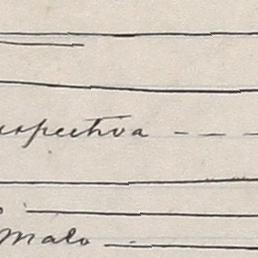 erspectiva - - -
Malo